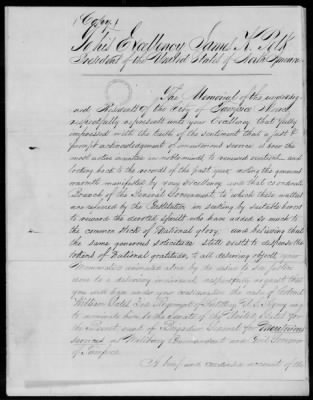 (Copy)
To his Excellency James K. Polk
President of the United States of North America
The Memorial of the undersig-
ned Residents of the City of Tampico
respectfully represents unto your Excellency that fully
impressed with the truth of the sentiment that a just &
prompt acknowledgment of meritorious service is ever the
most active incentive in noble minds to renewed exertion, and
looking back to the records of the past year, noting the generous
warmth manifested by your Excellency and that coordinate
Branch of the General Government to which these matters
are referred by the Constitution in seeking by suitable honors
to reward the devoted spirits who have added so much to
the common stock of National glory; and believing that
the same generous solicitude still exists to dispense the
tokens of National gratitude, to all deserving objects, your
Memorialists animated alone by the desire to see justice
done to a deserving individual respectfully request that
you will have under your consideration the case of Colonel
William Gates 3rd Regiment of Artillery U. S. Army
to nominate him to the Senate of the United States for
the Brevet rank of Brigadier General for Meritorious
services as Military Commandant and Civil Governor
of Tampico
A brief and account of the